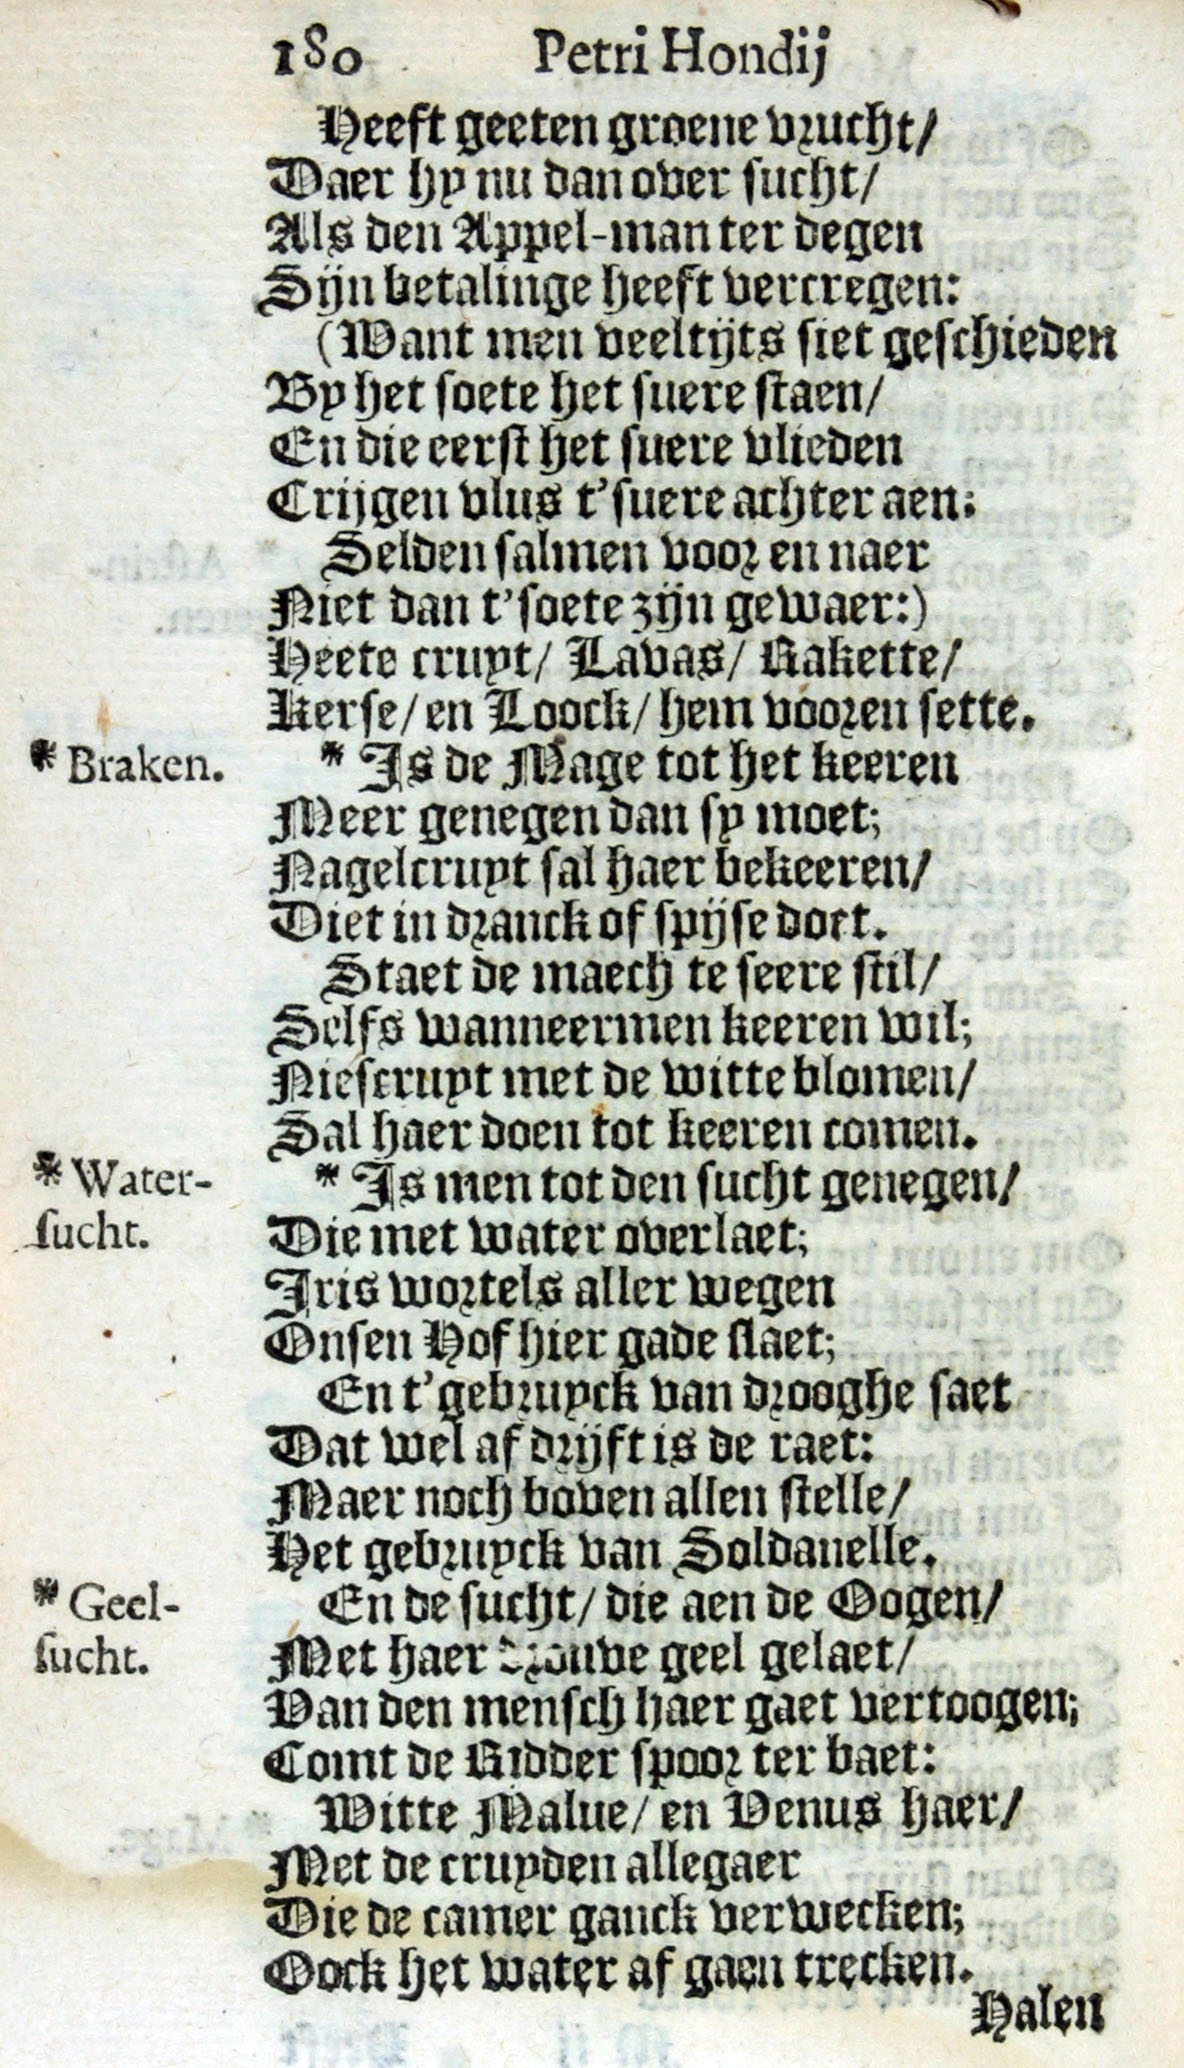 180 Petri Hondij
Heeft geeten groene vrucht/
Daer hy nu dan over sucht/
Als den Appel-man ter degen
Sijn betalinge heeft vercregen:
(Want men veeltijts siet geschieden
By het soete het suere staen/
En die eerst het suere vlieden
Crijgen vlus t'suere achter aen:
Selden salmen voor en naer
Niet dan t'soete zijn gewaer:)
Heete cruyt/ Lavas/ Rakette/
Kerse/ en Loock/ hem vooren sette.
* Braken.
* Is de Mage tot het keeren
Meer genegen dan sy moet;
Nagelcruyt sal haer bekeeren/
Diet in dranck of spijse doet.
Staet de maech te seere stil/
Selfs wanneermen keeren wil;
Niescruyt met de witte blomen/
Sal haer doen tot keeren comen.
* Water-
sucht.
* Is men tot den sucht genegen/
Die met water overlaet;
Iris wortels aller wegen
Onsen Hof hier gade slaet;
En t'gebruyck van drooghe saet
Dat wel af drijft is de raet:
Maer noch boven allen stelle/
Het gebruyck van Soldanelle.
* Geel-
sucht.
En de sucht/ die aen de Oogen/
Met haer geel gelaet/
Van den mensch haer gaet vertoogen;
Comt de Ridder spoor ter baet:
Witte Malue/ en Venus haer/
Met de cruyden allegaer
Die de camer ganck verwecken;
Oock het water af gaen trecken.
Halen